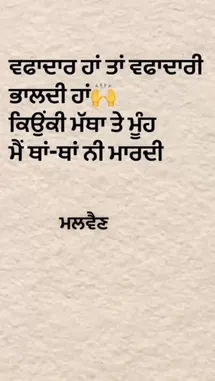 ਵਫਾਦਾਰ ਹਾਂ ਤਾਂ ਵਫਾਦਾਰੀ
ਭਾਲਦੀ ਹਾਂ🙌
ਕਿਉਂਕੀ ਮੱਥਾ ਤੇ ਮੂੰਹ
ਮੈਂ ਥਾਂ-ਥਾਂ ਨੀ ਮਾਰਦੀ
ਮਲਵੈਣ